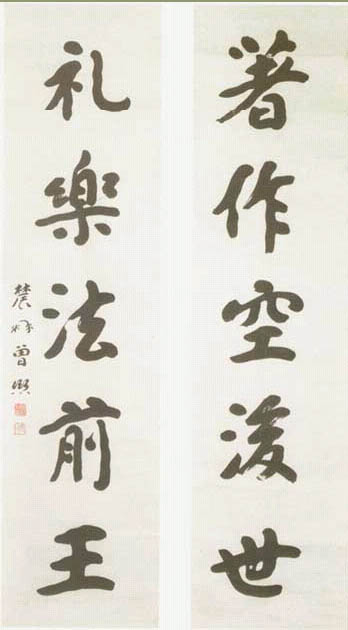 著作空後世
礼樂法前王
農髯曾熙